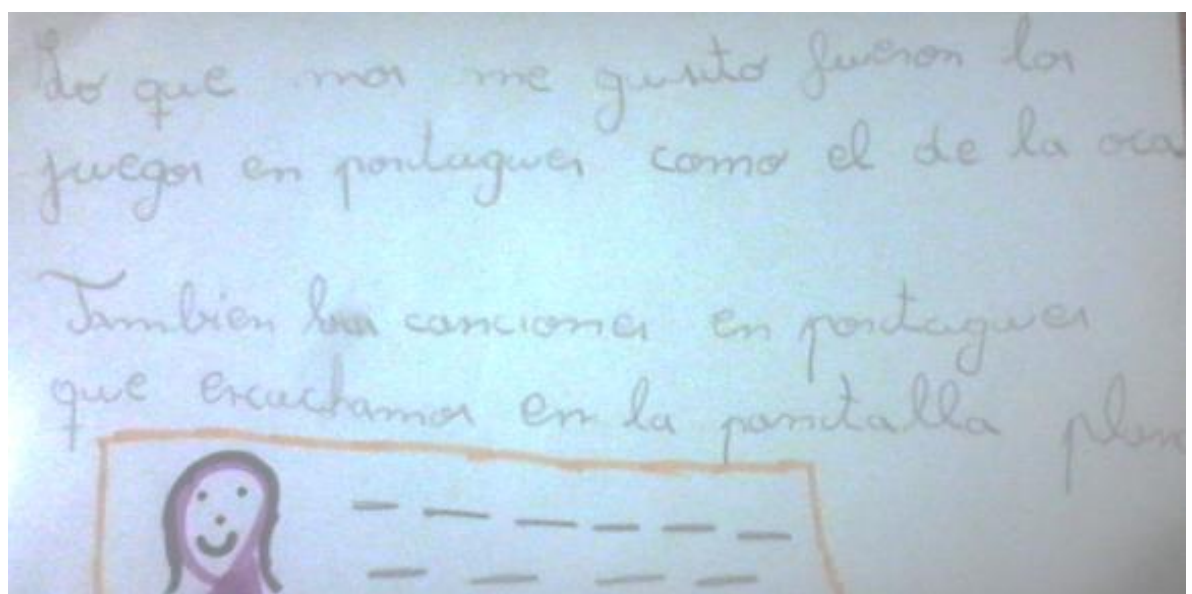 Lo que mas me gusto fueron los
juegos en portugues como el de la oca
Tambien las canciones en portugues
que escuchamos en la pantalla